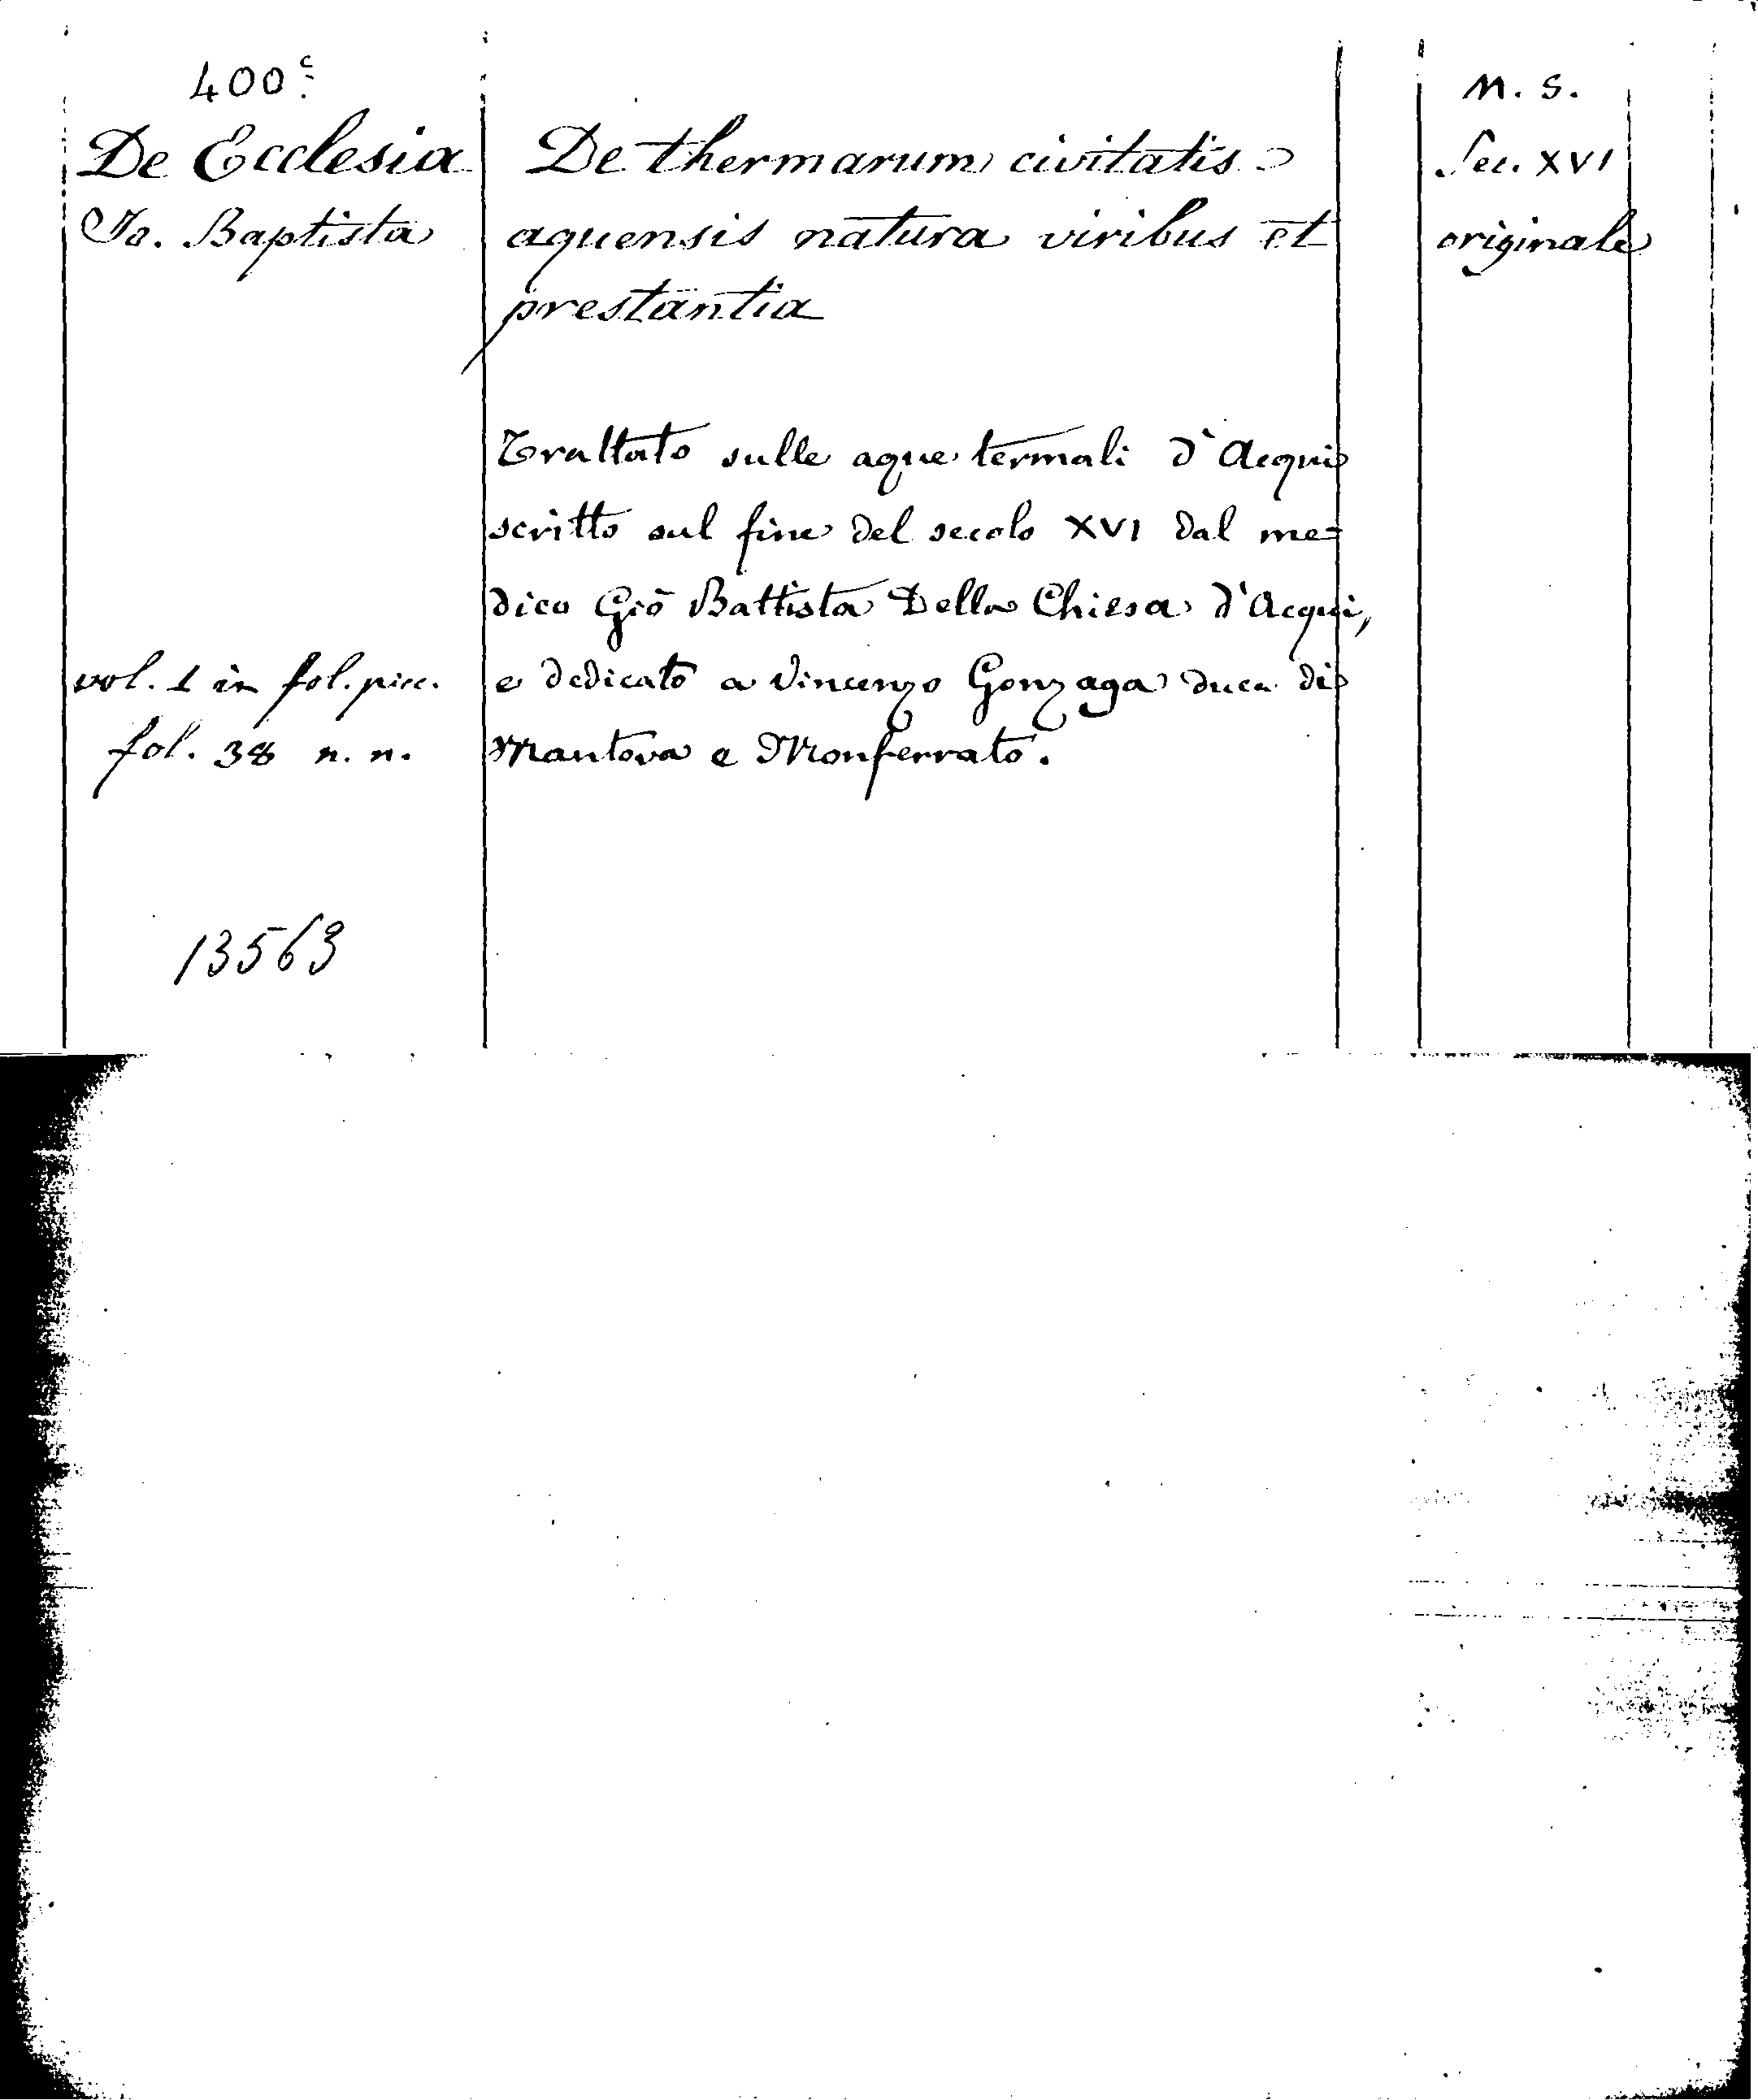 400c.
De Ecclesia
Jo. Baptista
De thermarum civitatis
aquensis natura viribus et
prestantia
M. S.
Sec. XVI
originale
Trattato sulle aque termali d'Acqui
scritto sul fine del secolo XVI dal me=
dico Gio Battista Della Chiesa d'Acqui,
e dedicato a Vincenzo Gonzaga duca di
Mantova e Monferrato.
vol. 1 in fol. picc.
fol. 38 n. n.
13563